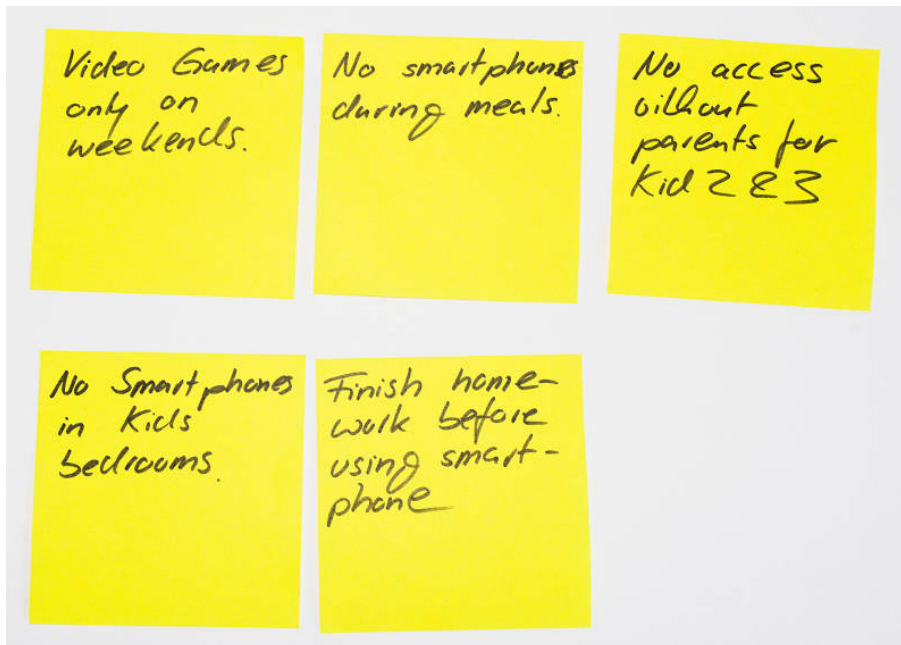 Video Games
only on
weekends.
No smartphones
during meals.
No access
without
parents for
Kid 2 & 3
No Smartphones
in Kids
bedrooms.
Finish home-
work before
using smart-
phone